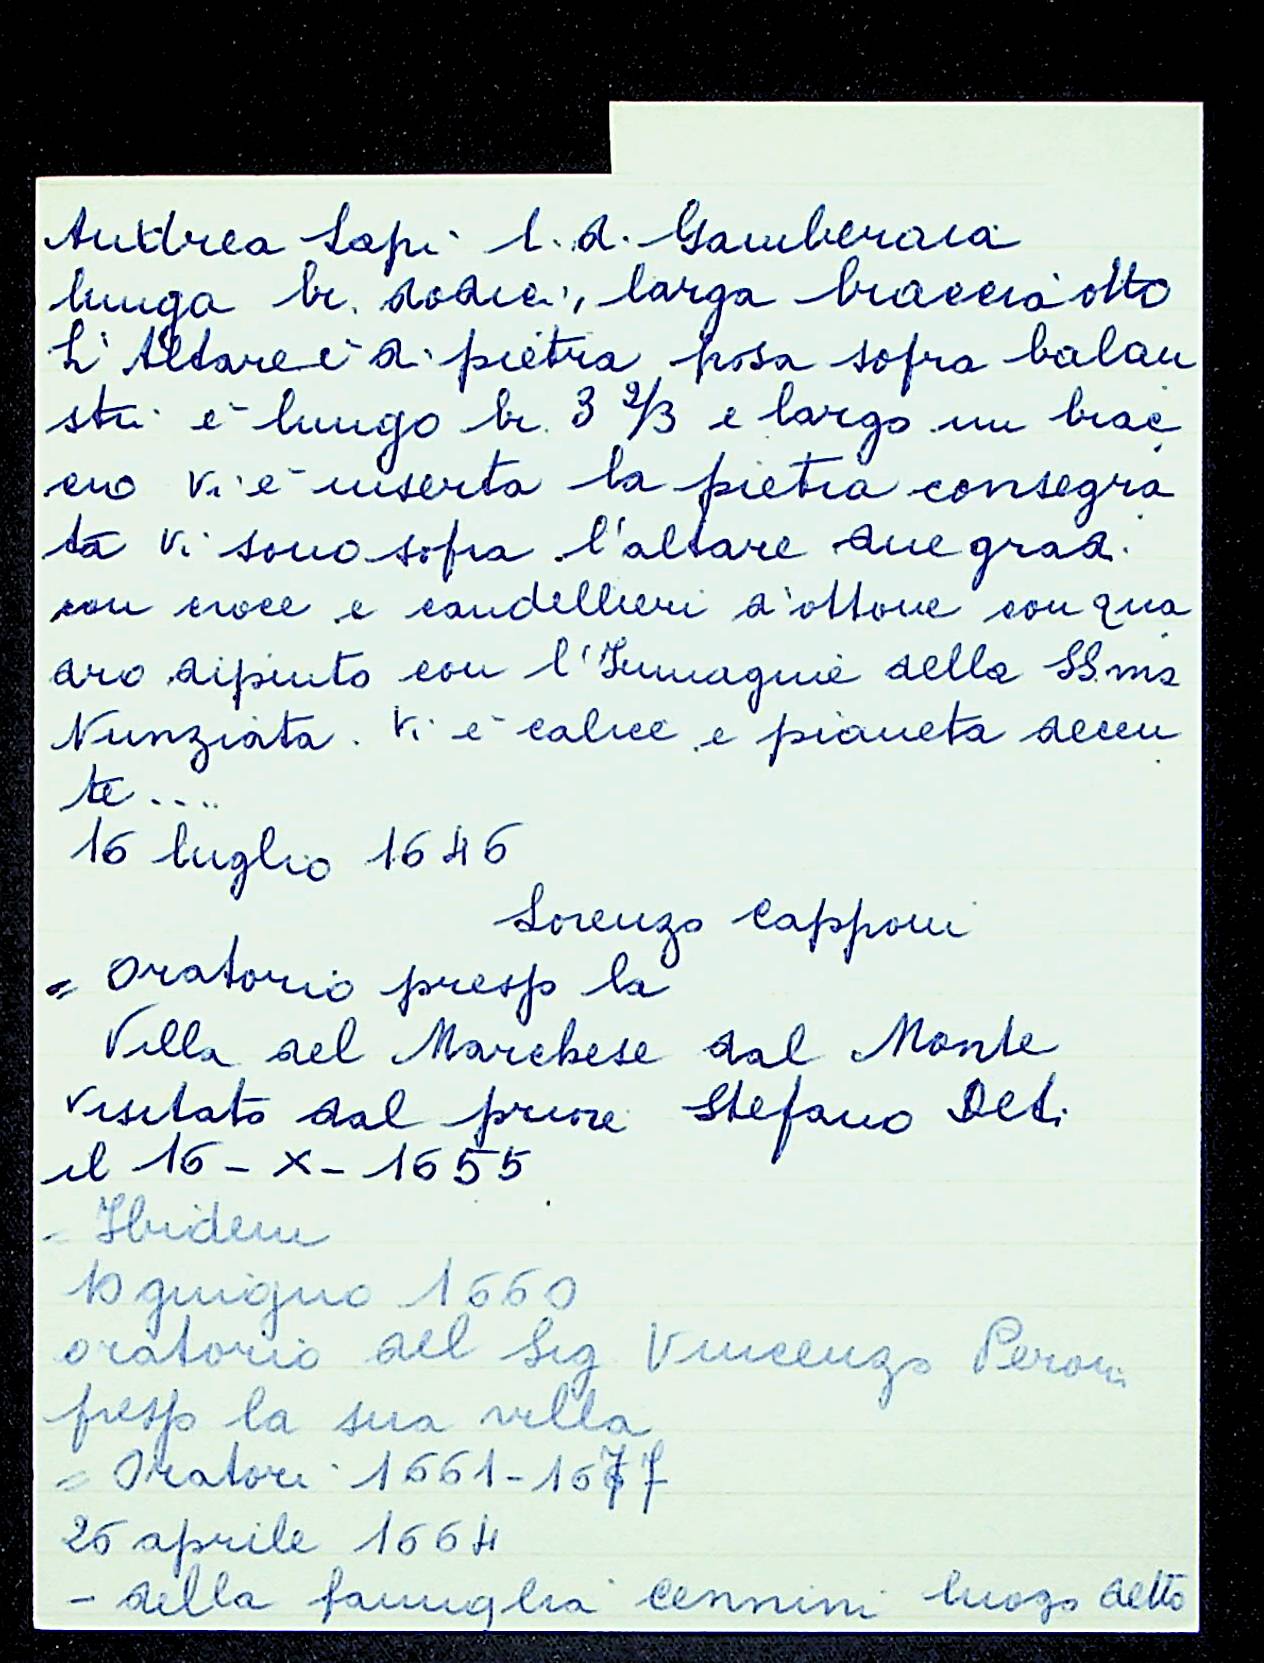 Andrea Lapi l. d. Gamberaia
lunga br. dodici, larga braccia otto
L'Altare è di pietra posa sopra balau
stri è lungo br. 3 2/3 e largo un brac
cio Vi è inserta la pietra consegra
ta Vi sono sopra l'altare due gradi
con croce e candellieri d'ottone con qua
dro dipinto con l'Immagine della SS.ma
Nunziata. Vi è calice e pianeta decen
te....
16 luglio 1646
Lorenzo Capponi
= Oratorio presso la
Villa del Marchese dal Monte
visitato dal priore Stefano Deti
il 16 - X - 1655
= Ibidem
10 giugno 1660
oratorio del Sig Vincenzo Peroni
presso la sua villa
= Oratori 1661-1677
26 aprile 1664
- della famiglia Cennini luogo detto